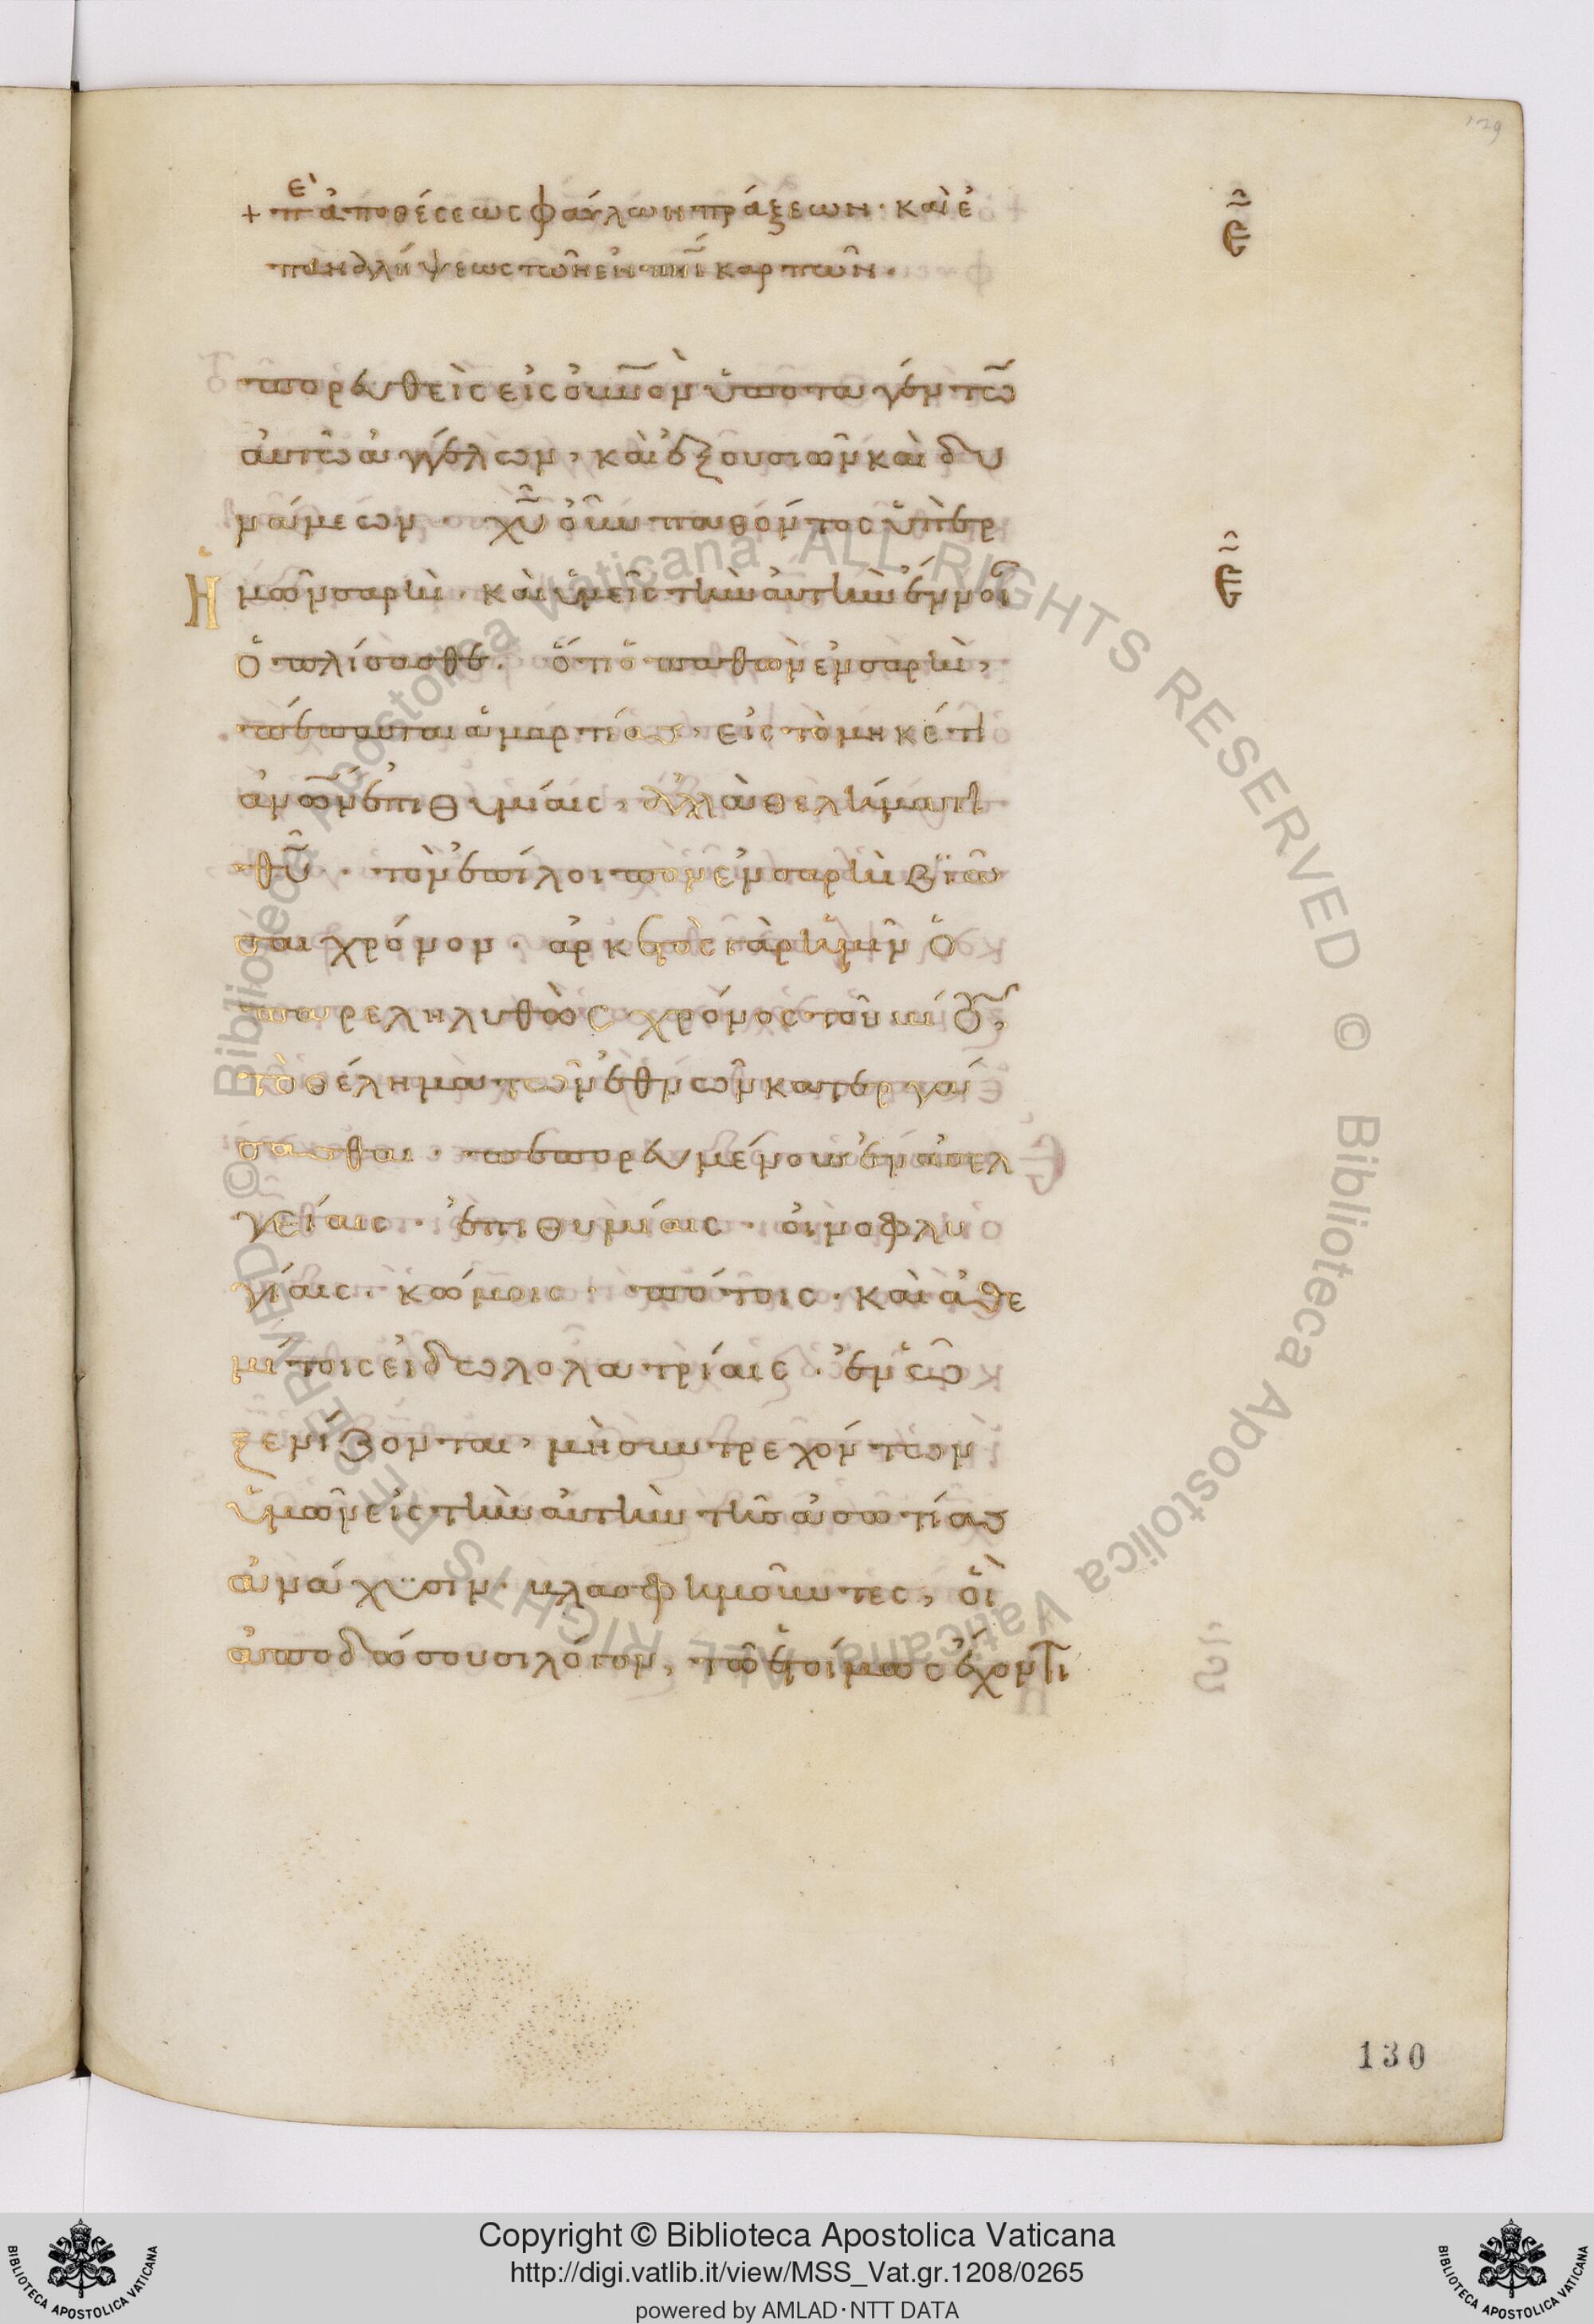 129
+ πε ἀποθέσεως φαύλων πράξεων· καὶ ἐ
παναλήψεως τῶν ἐν πνὶ καρπῶν.
ε
πορευθεὶς εἰς οὐνον ὑποταγέντω
αὐτῶ ἀγγέλων, καὶ ἐξουσιῶν καὶ δυ
νάμεων· χυ οὖν παθόντος ὑπὲρ
ε
ἡμῶν σαρκὶ· καὶ ὑμεῖς τὴν αὐτὴν ἔννοι
ὁπλίσασθε. ὅτι ὁ παθὼν ἐν σαρκὶ,
πέπαυται ἁμαρτίας, εἰς τὸ μηκέτι
ἀνων ἐπιθυμίαις, ἀλλὰ θελήματι
θυ· τὸν ἐπίλοιπον ἐν σαρκὶ βιῶ
σαι χρόνον· ἀρκετὸς γὰρ ἡμῖν ὁ
παρεληλυθὼς χρόνος τοῦ βίου,
τὸ θέλημα τῶν ἐθνῶν κατεργά
σασθαι· πεπορευμένους ἐν ἀσελ
γείαις· ἐπιθυμίαις· οἰνοφλυ
γίαις· κώμοις· πότοις· καὶ ἀθε
μίτοις εἰδωλολατρίαις· ἐν ὧ
ξενίζονται, μὴ συντρεχόντων
ὑμῶν εἰς τὴν αὐτὴν τῆς ἀσωτίας
ἀνάχυσιν· βλασφημοῦντες, οἳ
ἀποδώσουσι λόγον, τῶ ἑτοίμως ἔχοντι
130
© Biblioteca Apostolica Vaticana ALL RIGHTS RESERVED © Biblioteca Apostolica Vaticana ALL RIGHTS RESERVED
Copyright © Biblioteca Apostolica Vaticana
http://digi.vatlib.it/view/MSS_Vat.gr.1208/0265
powered by AMLAD·NTT DATA
BIBLIOTECA APOSTOLICA VATICANA
BIBLIOTECA APOSTOLICA VATICANA